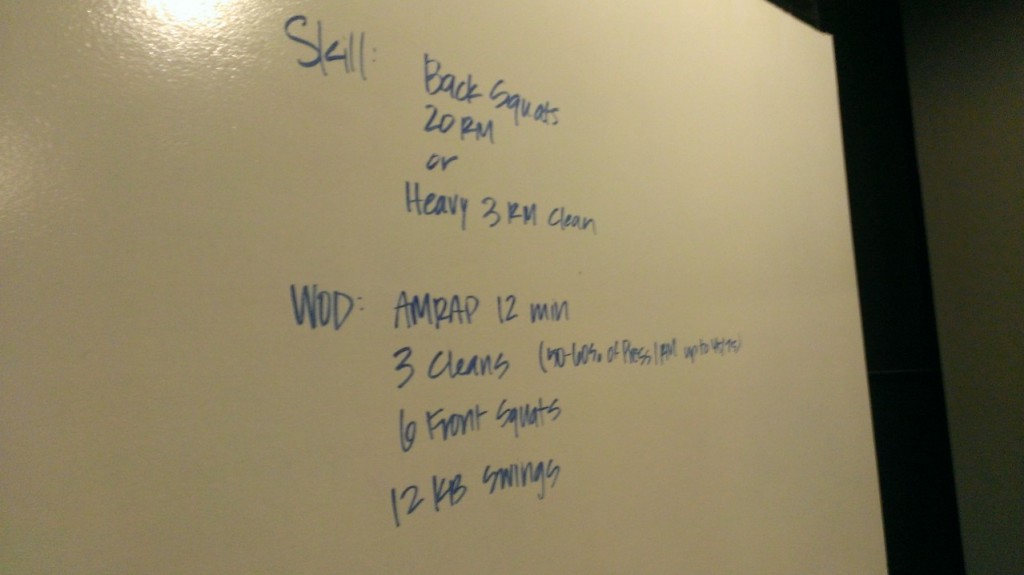 Skill:
Back Squats
20 RM
or
Heavy 3 RM Clean
WOD: AMRAP 12 min
3 Cleans (50-60% of Press 1RM up to
6 Front Squats
12 KB Swings